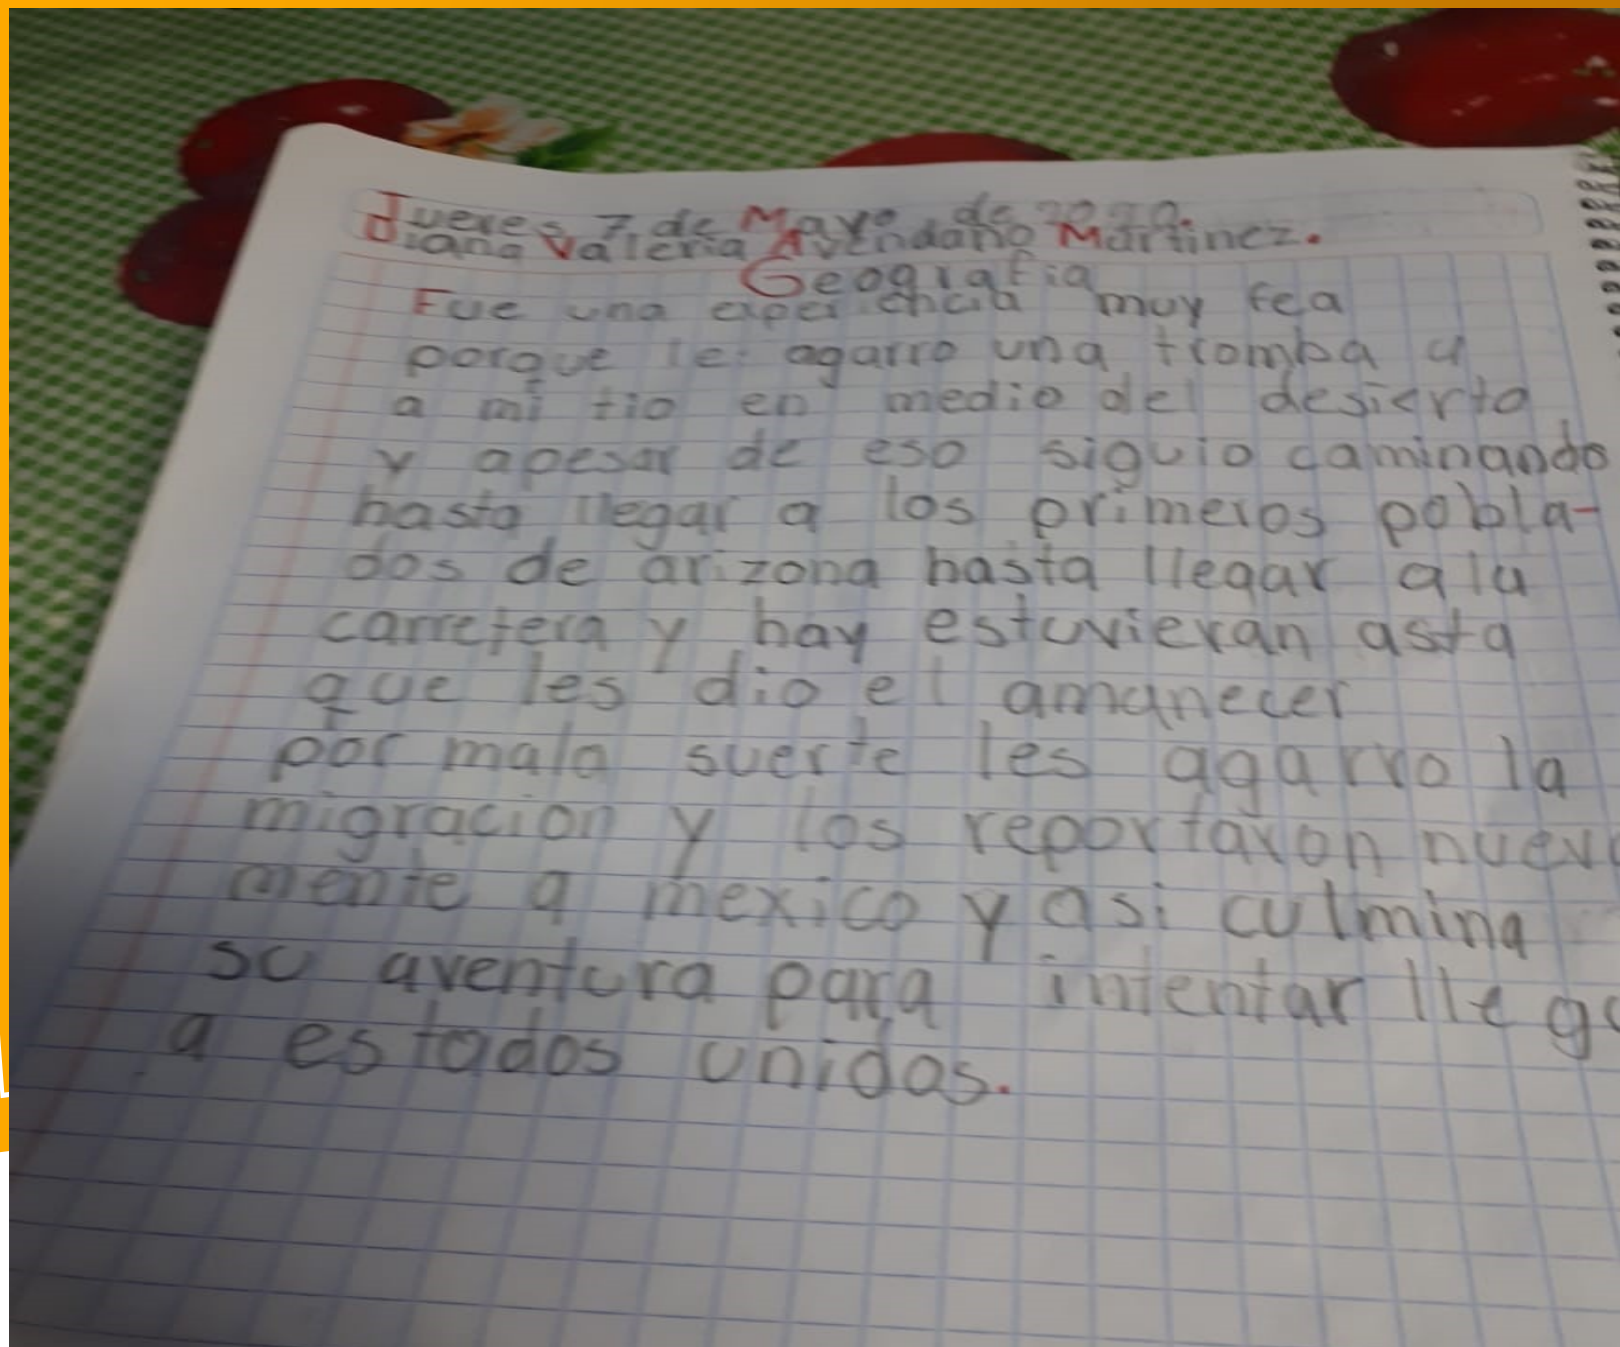 Jueves 7 de Mayo de 2020.
diana Valeria Avendaño Martinez.
Geografia
Fue una experiencia muy fea
porque le agarro una tromba a
a mi tio en medio del desierto
y apesar de eso siguio caminando
hasta llegar a los primeros pobla-
dos de arizona hasta llegar ala
carretera y hay estuvieran asta
que les dio el amanecer
por mala suerte les agarro la
migracion y los reportaron nueva
mente a mexico y asi culmina
su aventura para intentar llega
a estados unidos.